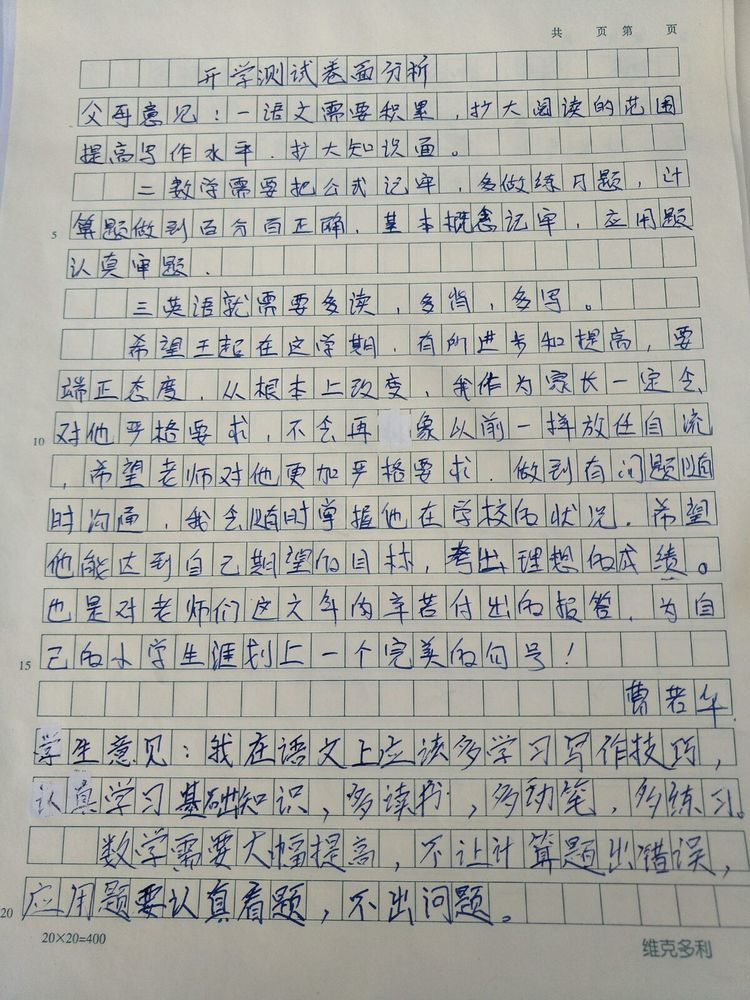 共 页 第 页
开学测试卷面分析
父母意见：一语文需要积累，扩大阅读的范围
提高写作水平．扩大知识面。
二数学需要把公式记牢，多做练习题，计
5 算题做到百分百正确．基本概念记牢，应用题
认真审题．
三英语就需要多读，多背，多写。
希望王起在这学期．有所进步和提高，要
端正态度，从根本上改变，我作为家长一定会
10 对他严格要求，不会再象以前一样放任自流
，希望老师对他更加严格要求．做到有问题随
时沟通，我会随时掌握他在学校的状况．希望
他能达到自己期望的目标，考出理想的成绩。
也是对老师们这六年的辛苦付出的报答．为自
15 己的小学生涯划上一个完美的句号！
曹若华
学生意见：我在语文上应该多学习写作技巧，
认真学习基础知识，多读书，多动笔，多练习。
数学需要大幅提高，不让计算题出错误，
20 应用题要认真看题，不出问题。
20×20=400 维克多利